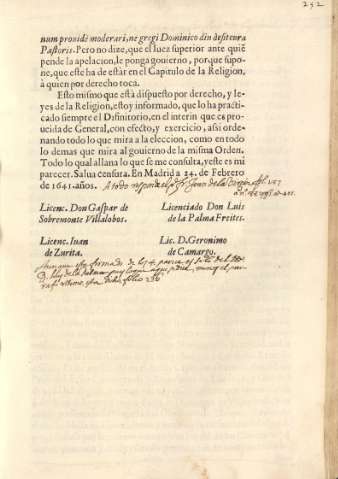 252
num prouidè moderari, ne gregi Dominico diu desit cura
Pastoris. Pero no dize, que el juez superior ante quiẽ
pende la apelacion, le ponga gouierno, porque supo-
ne, que este ha de estàr en el Capitulo de la Religion,
à quien por derecho toca.
Esto mismo que està dispuesto por derecho, y le-
yes de la Religion, estoy informado, que lo ha practi-
cado siempre el Difinitorio, en el interin que es pro-
ueida de General, con efecto, y exercicio, assi orde-
nando todo lo que mira a la eleccion, como en todo
lo demas que mira al gouierno de la misma Orden.
Todo lo qual allana lo que se me consulta, y este es mi
parecer. Salua censura. En Madrid a 24. de Febrero
de 1641. años. A todo responde el p. fr. Juan de la
Licenc. Don Gaspar de
Sobremonte Villalobos.
Licenciado Don Luis
de la Palma Freites.
Licenc. Iuan
de Zurita.
Lic. D. Geronimo
de Camargo.
Aunque esta firmado de los 4.
D. Luis de la Palma
folio 236